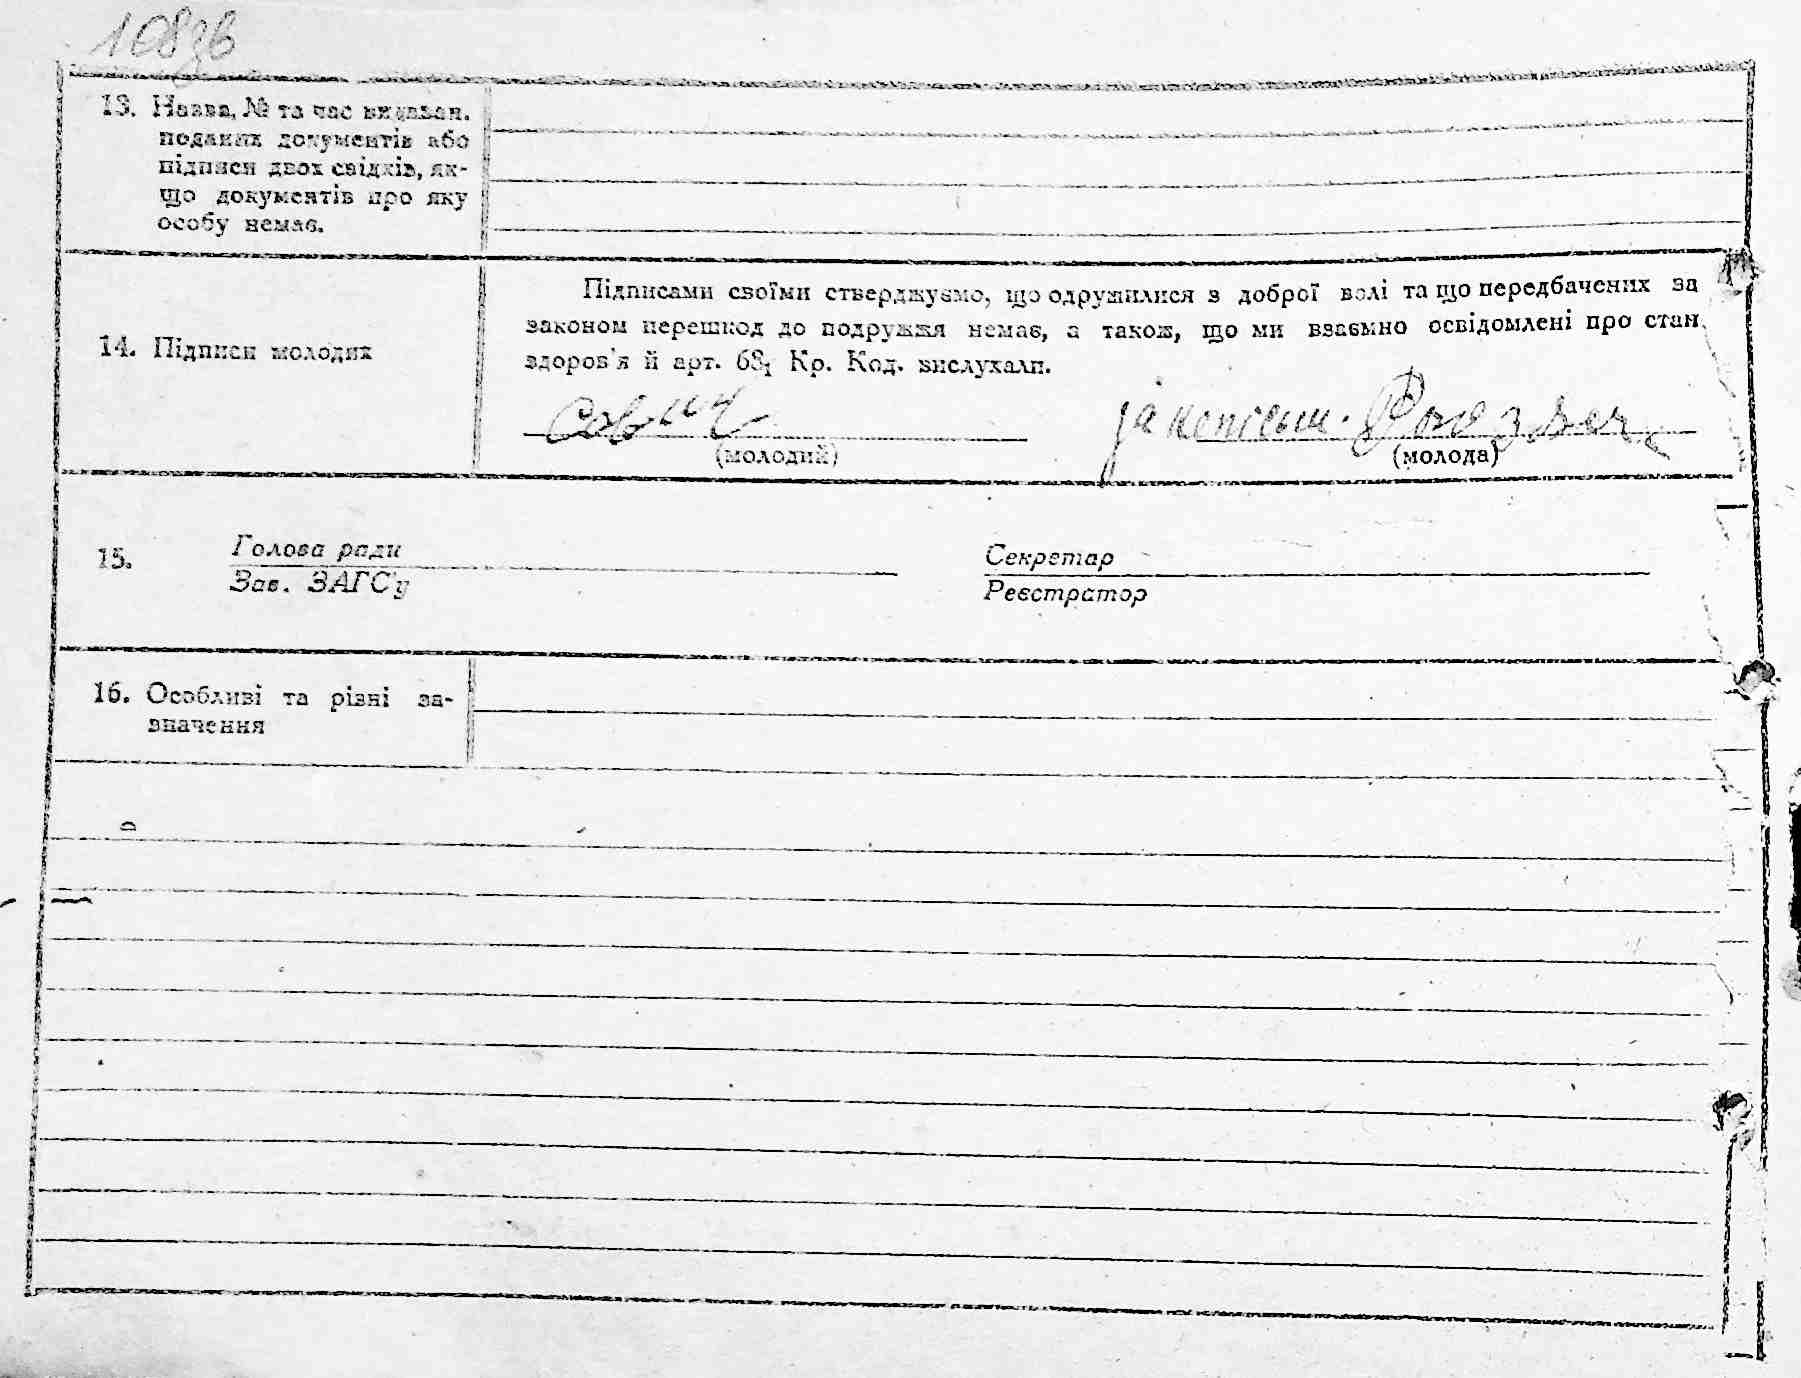 108зв
13. Назва, № та час видаван.
поданих документів або
підписи двох свідків, як-
що документів про яку
особу немає.
14. Підписи молодих
Підписами своїми стверджуємо, що одружилися з доброї волі та що передбачених за
законом перешкод до подружжя немає, а також, що ми взаємно освідомлені про стан
здоров'я й арт. 68₁ Кр. Код. вислухали.
Сович
(молодий)
(молода)
15.
Голова ради
Зав. ЗАГС'у
Секретар
Реєстратор
16. Особливі та різні за-
значення